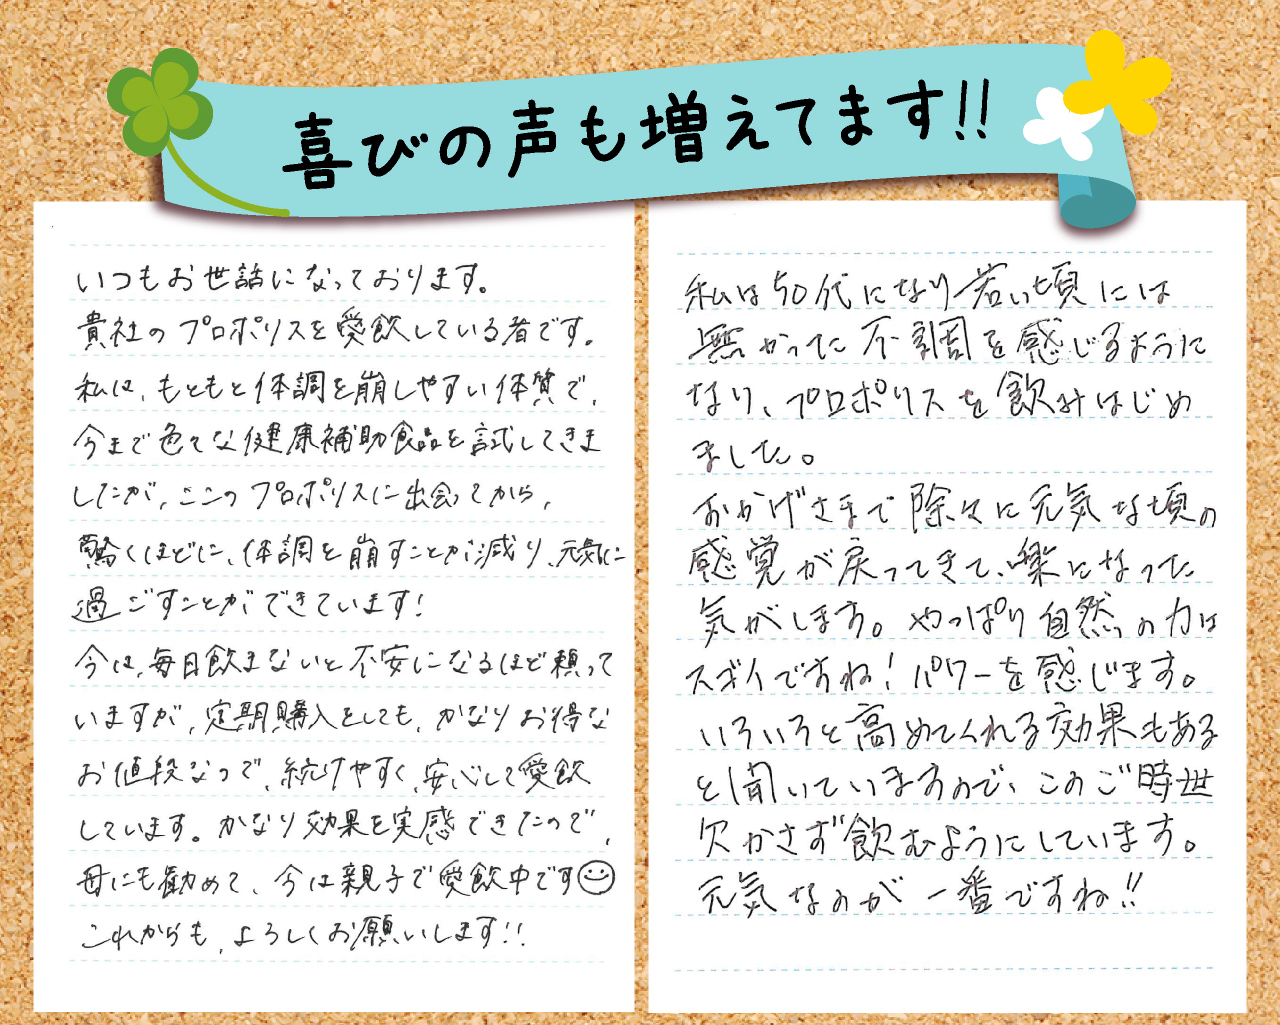 喜びの声も増えてます!!
いつもお世話になっております。
貴社のプロポリスを愛飲している者です。
私は、もともと体調を崩しやすい体質で、
今まで色々な健康補助食品を試してきま
したが、ここのプロポリスに出会ってから、
驚くほどに、体調を崩すことが減り、元気に
過ごすことができています!
今は、毎日飲まないと不安になるほど頼って
いますが、定期購入をしても、かなりお得な
お値段なので、続けやすく、安心して愛飲
しています。かなり効果を実感できたので、
母にも勧めて、今は親子で愛飲中です☺
これからも、よろしくお願いします!!
私は50代になり若い頃には
無かった不調を感じるように
なり、プロポリスを飲みはじめ
ました。
おかげさまで除々に元気な頃の
感覚が戻ってきて、楽になった
気がします。やっぱり自然の力は
スゴイですね!パワーを感じます。
いろいろと高めてくれる効果もある
と聞いていますので、このご時世
欠かさず飲むようにしています。
元気なのが一番ですね!!